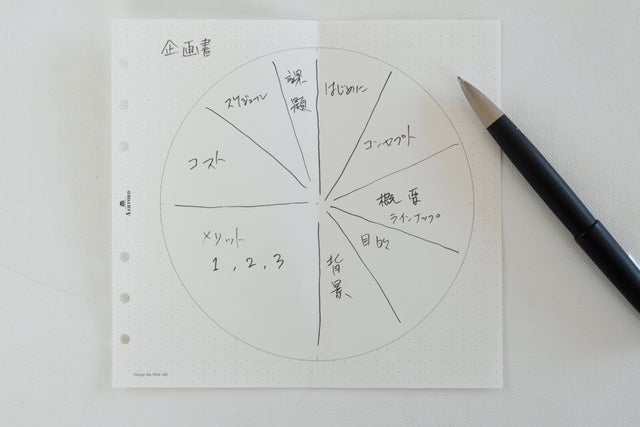 企画書
はじめに
コンセプト
概要
ラインナップ
目的
背景
メリット
1, 2, 3
コスト
スケジュール
課題
ASHFORD